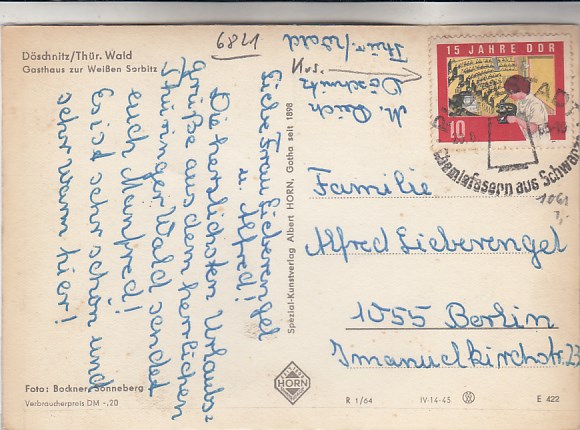 Döschnitz/Thür. Wald
Gasthaus zur Weißen Sorbitz
6821
Abs.
M. Reich
Döschnitz
Thür./Wald
Liebe Frau Lieberengel
u. Alfred!
Die herzlichsten Urlaubs=
grüße aus dem herrlichen
Thüringer Wald sendet
euch Manfred!
Es ist sehr schön und
sehr warm hier!
Foto: Bockner, Sonneberg
Verbraucherpreis DM -,20
Spezial-Kunstverlag Albert HORN, Gotha seit 1898
HORN
15 JAHRE DDR
10
Chemiefasern aus Schwarza
1061
Familie
Alfred Lieberengel
1055 Berlin
Immanuelkirchstr. 23
R 1/64
IV-14-45
E 422